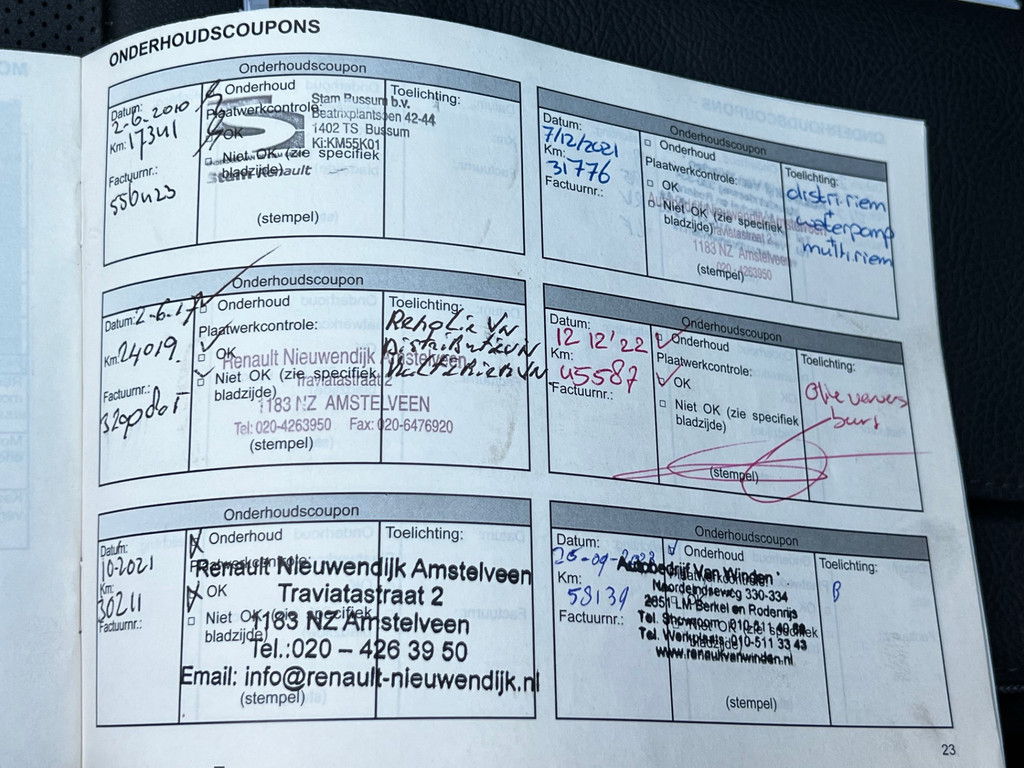 ONDERHOUDSCOUPONS
Onderhoudscoupon
Datum:
2-6-2010
Km: 17341
Factuurnr.:
□ Onderhoud
Plaatwerkcontrole:
OK
□ Niet OK (zie specifiek
bladzijde)
Stam Bussum b.v.
Beatrixplantsoen 42-44
1402 TS Bussum
Ki:KM55K01
stam Renault
(stempel)
Toelichting:
Onderhoudscoupon
Datum: 2-6-17
Km: 24019.
Factuurnr.:
□ Onderhoud
Plaatwerkcontrole:
□ OK
□ Niet OK (zie specifiek
bladzijde)
Renault Nieuwendijk Amstelveen
Traviatastraat 2
1183 NZ AMSTELVEEN
Tel: 020-4263950 Fax: 020-6476920
(stempel)
Toelichting:
Onderhoudscoupon
Datum:
10-2021
Km:
30211
Factuurnr.:
Onderhoud
Plaatwerkcontrole:
OK
□ Niet OK (zie specifiek
bladzijde)
Renault Nieuwendijk Amstelveen
Traviatastraat 2
1183 NZ Amstelveen
Tel.:020 – 426 39 50
Email: info@renault-nieuwendijk.nl
(stempel)
Toelichting:
Onderhoudscoupon
Datum:
7/12/2021
Km:
31776
Factuurnr.:
□ Onderhoud
Plaatwerkcontrole:
□ OK
□ Niet OK (zie specifiek
bladzijde)
Traviatastraat 2
1183 NZ Amstelveen
020-4263950
(stempel)
Toelichting:
distri.riem
+
waterpomp
multiriem
Onderhoudscoupon
Datum:
12 12'22
Km:
45587
Factuurnr.:
Onderhoud
Plaatwerkcontrole:
OK
□ Niet OK (zie specifiek
bladzijde)
(stempel)
Toelichting:
Olie ververs
burt
Onderhoudscoupon
Datum:
Km:
58139
Factuurnr.:
Onderhoud
Autobedrijf Van Winden
Noordeindseweg 330-334
2651 LM Berkel en Rodenrijs
Tel. Showroom 010-511
Tel. Werkplaats 010-511 33 43
www.renaultvanwinden.nl
(stempel)
Toelichting:
B
23